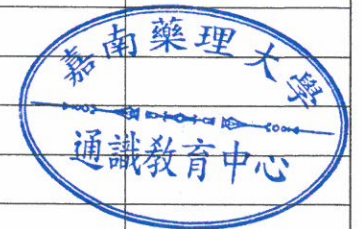 嘉南藥理大學
通識教育中心